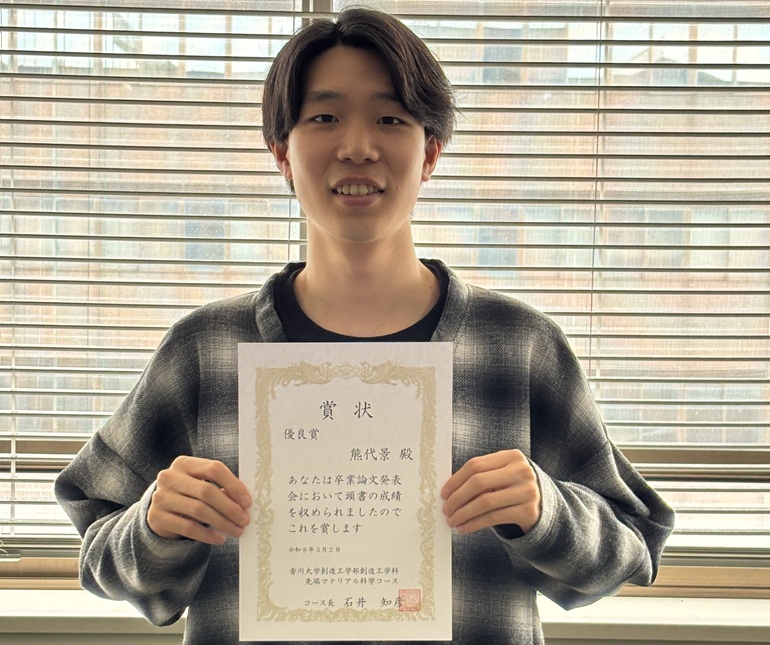 賞 状
優良賞
熊代景 殿
あなたは卒業論文発表
会において頭書の成績
を収められましたので
これを賞します
令和8年3月2日
香川大学創造工学部創造工学科
先端マテリアル科学コース
コース長 石井 知彦